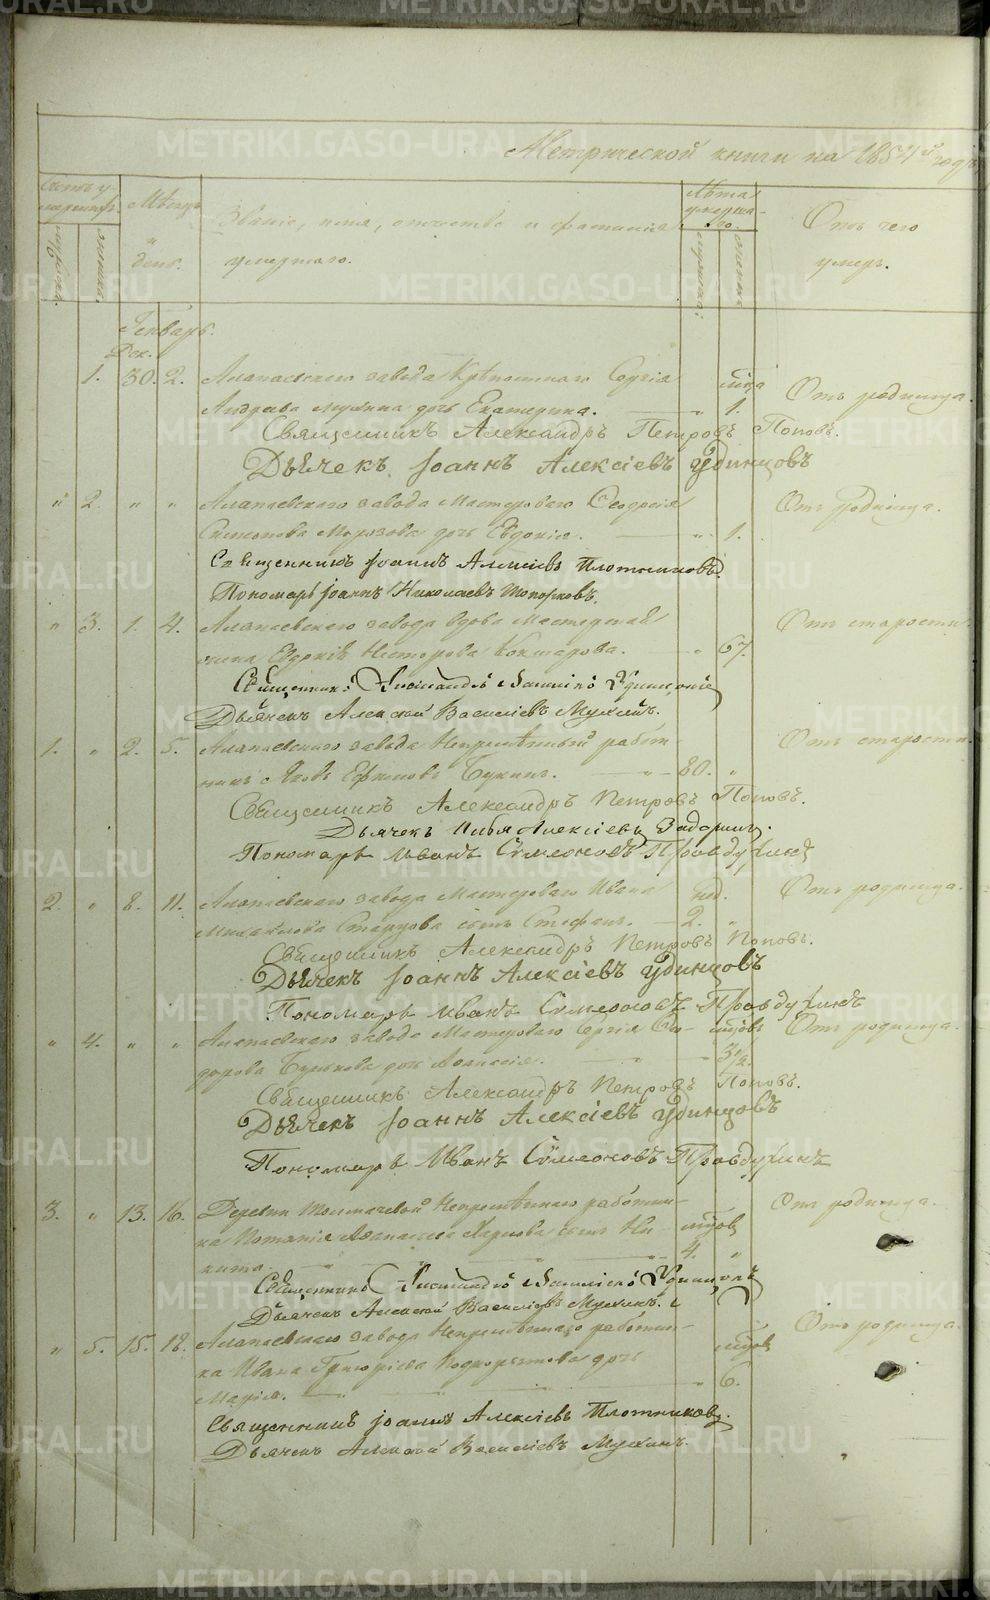 METRIKI.GASO-URAL.RU
Метрической книги на 1854й годъ
Счетъ умершихъ.
мужска.
женска.
Мѣсяцъ и день.
Званіе, имя, отчество и фамилія
умершаго.
Лѣта умершаго.
мужска:
женска
Отъ чего
умеръ.
Генварь.
Дек.
1. 30. 2. Алапаевскаго завода Крѣпостнаго Сергія мѣца Отъ родимца.
Андреева дочь Екатерина. — " 1.
Священникъ Александръ Петровъ Поповъ.
Дьячекъ Іоаннъ Алексіевъ Удинцовъ
" 2. " " Алапаевскаго завода Мастероваго Отъ родимца.
Симонова Морозова дочь Евдокія. — 1.
Священникъ Іоаннъ Алексіевъ Плотниковъ.
Пономарь Іоаннъ Николаевъ Топорковъ.
" 3. 1. 4. Алапаевскаго завода вдова Мастерская Отъ старости.
жена Евдокія Несторова " 67.
Священникъ Александръ Удинцовъ
Дьячекъ Алексій Василіевъ Мухинъ.
1. " 2. 5. Алапаевскаго завода Непремѣнный работ- Отъ старости.
никъ Яковъ Ефимовъ — " — 80. "
Священникъ Александръ Петровъ Поповъ.
Дьячекъ Алексіевъ Задоринъ.
Пономарь Иванъ Сѵмеоновъ Правдухинъ
2. " 8. 11. Алапаевскаго завода Мастероваго Ивана нед. Отъ родимца.
Михайлова Старцова сынъ Стефанъ. — 2. "
Священникъ Александръ Петровъ Поповъ.
Дьячекъ Іоаннъ Алексіевъ Удинцовъ
Пономарь Иванъ Сѵмеоновъ Правдухинъ
" 4. " " Алапаевскаго завода Мастероваго Сергія мѣцовъ Отъ родимца.
дочь " 3½.
Священникъ Александръ Петровъ Поповъ.
Дьячекъ Іоаннъ Алексіевъ Удинцовъ
Пономарь Иванъ Сѵмеоновъ Правдухинъ
3. " 13. 16. Деревни Толмачевой Непремѣннаго работни- мѣцов Отъ родимца.
ка сынъ Ни- 4. "
кита.
Священникъ Александръ Удинцовъ
Дьячекъ Алексій Василіевъ Мухинъ.
" 5. 15. 18. Алапаевскаго завода Непремѣннаго работни- мѣцов Отъ родимца.
ка Ивана Григоріева дочь
Марія. — " 6.
Священникъ Іоаннъ Алексіевъ Плотниковъ.
Дьячекъ Алексій Василіевъ Мухинъ.